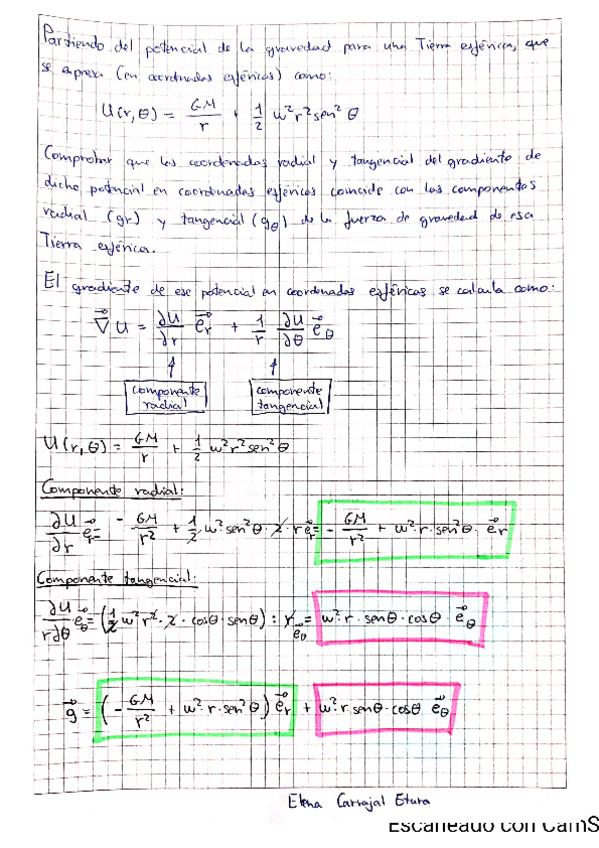 Partiendo del potencial de la gravedad para una Tierra esférica, que
se expresa (en coordenadas esféricas) como:
U(r,θ) = GM/r + 1/2 w²r²sen²θ
Comprobar que las coordenadas radial y tangencial del gradiente de
dicho potencial en coordenadas esféricas coincide con las componentes
radial (gr) y tangencial (gθ) de la fuerza de gravedad de esa
Tierra esférica.
El gradiente de ese potencial en coordenadas esféricas se calcula como:
∇⃗U = ∂U/∂r e⃗r + 1/r ∂U/∂θ e⃗θ
componente radial
componente tangencial
U(r,θ) = GM/r + 1/2 w²r²sen²θ
Componente radial:
∂U/∂r e⃗r = - GM/r² + 1/2 w²sen²θ·2·r e⃗r = - GM/r² + w²·r·sen²θ e⃗r
Componente tangencial:
∂U/r∂θ e⃗θ = (1/2 w²r²·2·cosθ·senθ) : r e⃗θ = w²·r·senθ·cosθ e⃗θ
g⃗ = (- GM/r² + w²·r·sen²θ) e⃗r + w²·r·senθ·cosθ e⃗θ
Elena Carvajal Etura
Escaneado con CamS